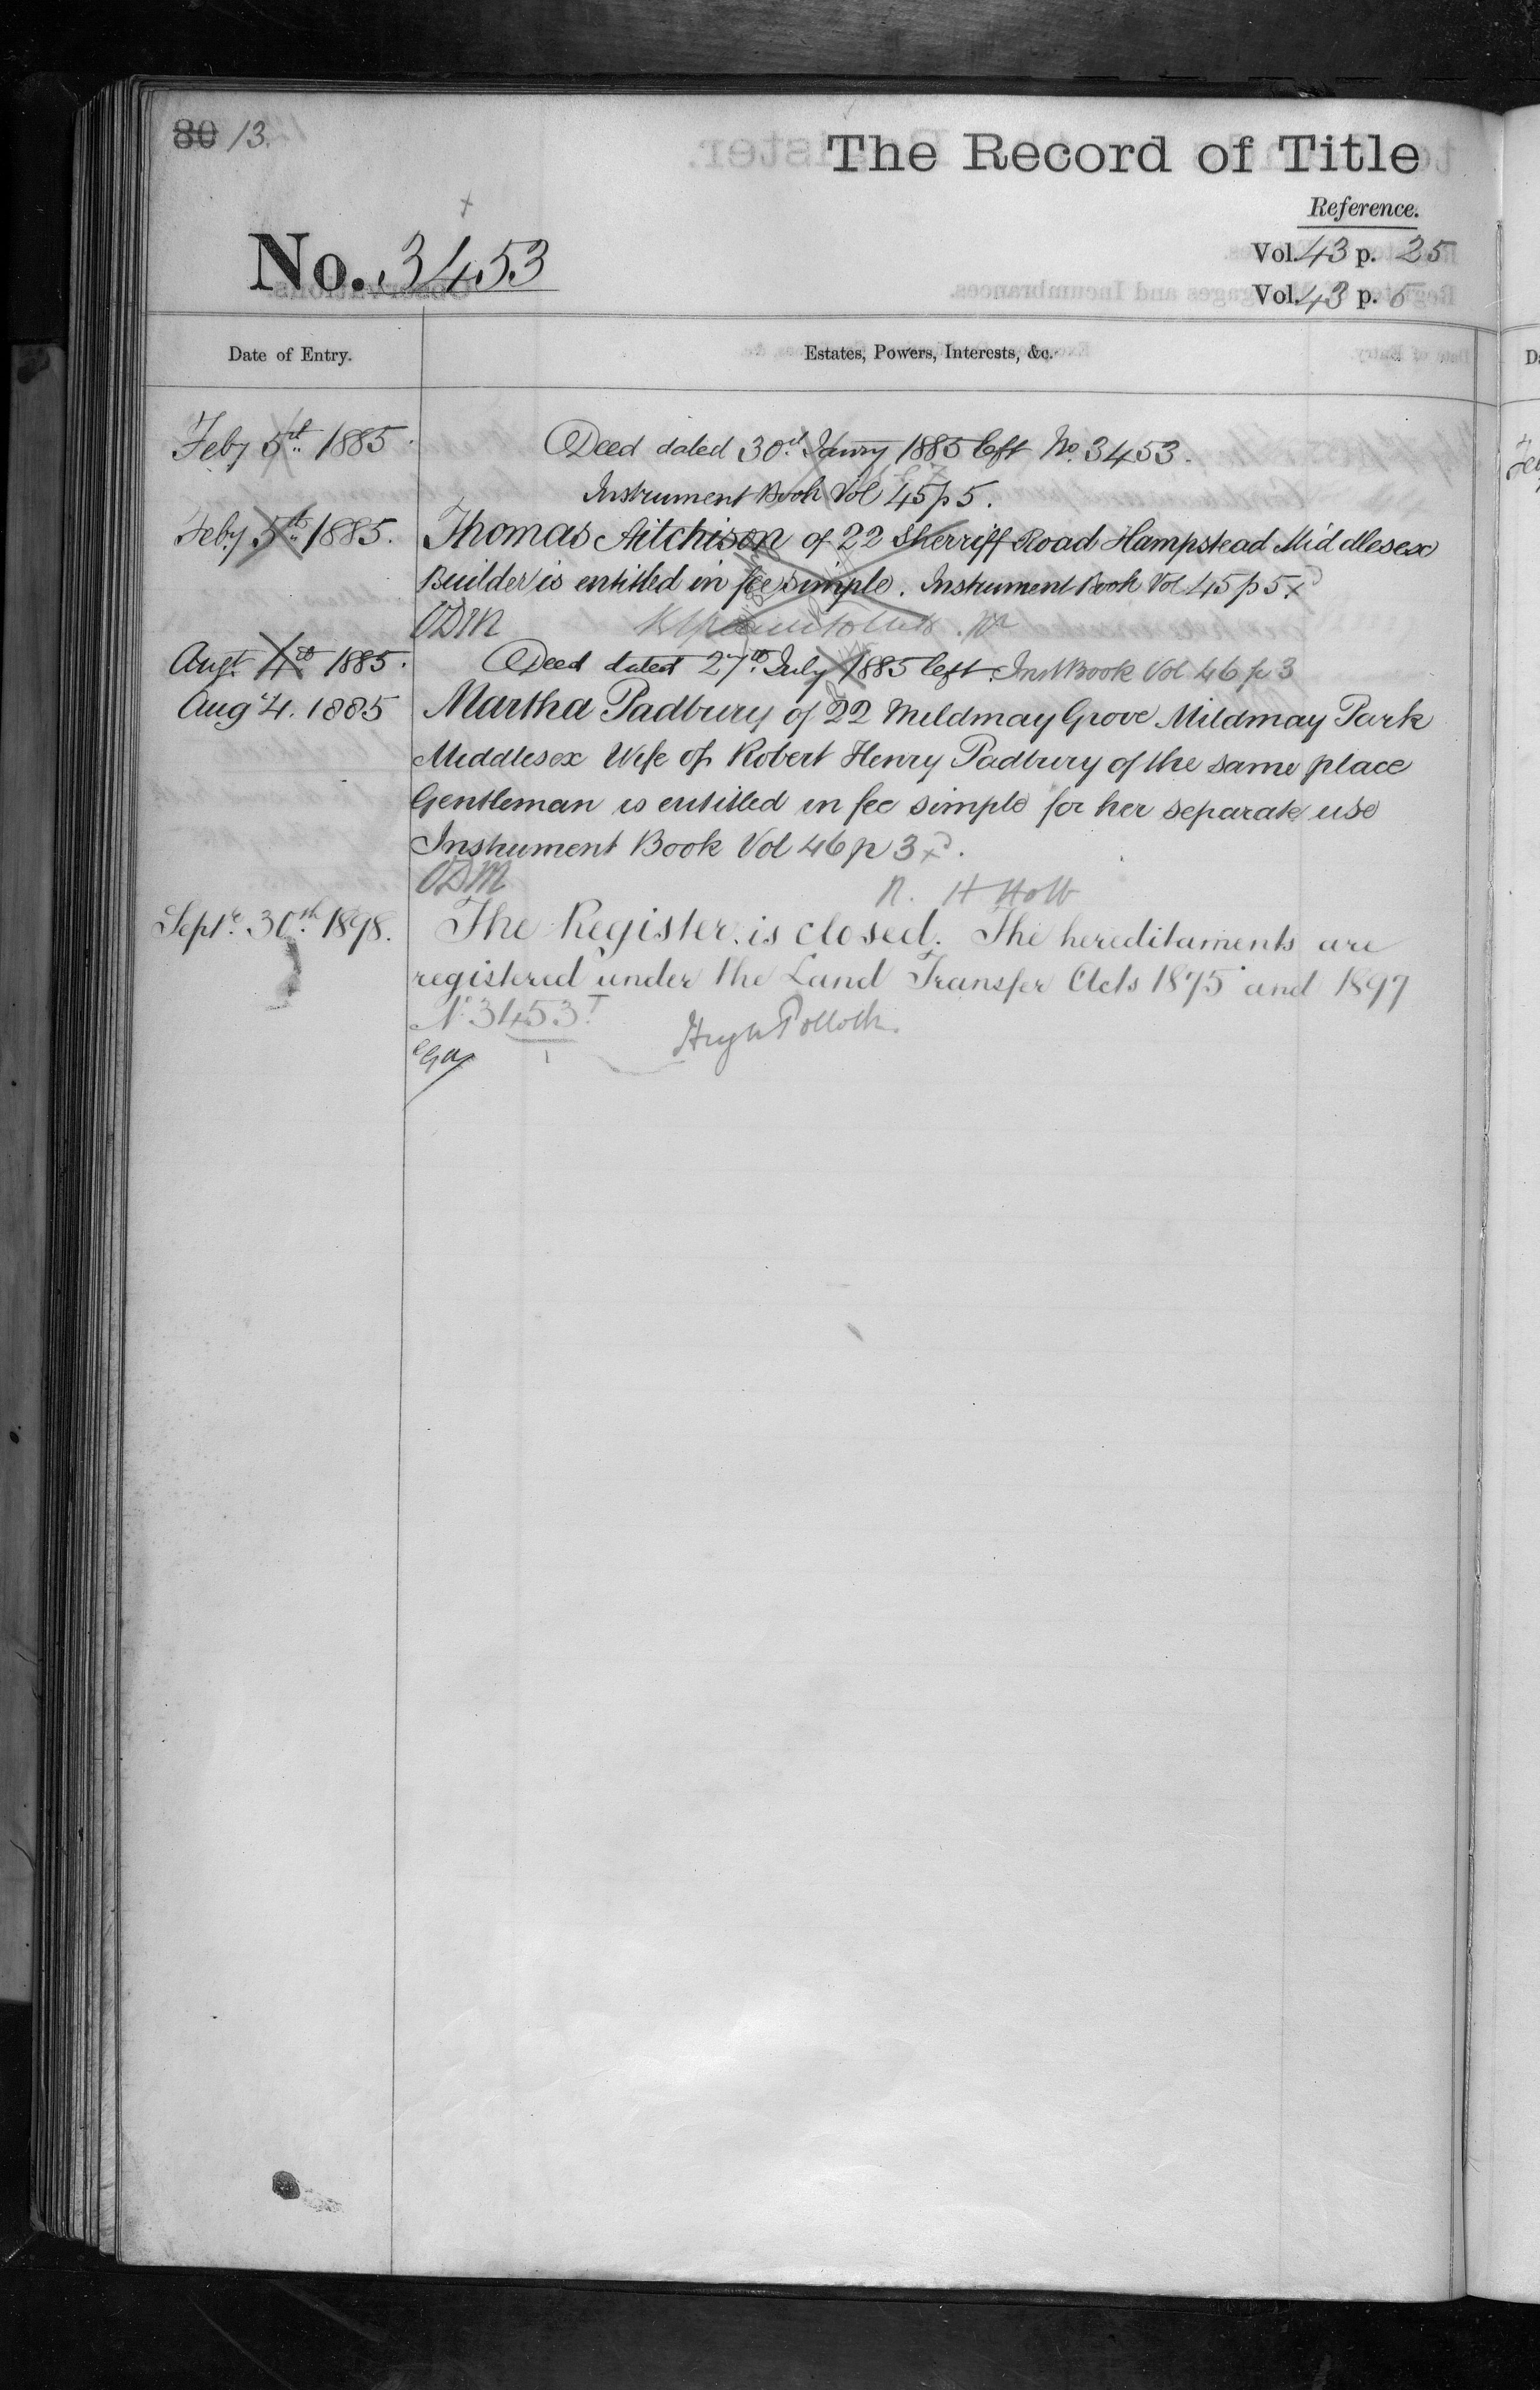 80 13.
The Record of Title
Reference.
No. 3453
Vol. 43 p. 25
Vol. 43 p. 5
Date of Entry.
Estates, Powers, Interests, &c.
Feby 5th 1885. Deed dated 30th Janry 1885 left No. 3453.
Instrument Book Vol 45 p 5.
Feby 5th 1885. Thomas Aitchison of 22 Sherriff Road Hampstead Middlesex
Builder is entitled in fee simple. Instrument Book Vol 45 p 5
ODM
Augt. 4th 1885. Deed dated 27th July 1885 left. Inst Book Vol 46 p 3
Aug 4. 1885 Martha Padbury of 22 Mildmay Grove Mildmay Park
Middlesex Wife of Robert Henry Padbury of the same place
Gentleman is entitled in fee simple for her separate use
Instrument Book Vol 46 p 3.
ODM R. H Holt
Septr. 30th 1898. The Register is closed. The hereditaments are
registered under the Land Transfer Acts 1875 and 1897
No. 3453
Hugh Pollock